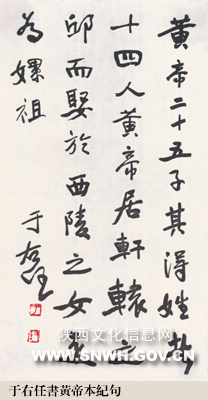 黃帝二十五子其得姓者
十四人黃帝居軒轅之
邱而娶於西陵之女是
為嫘祖
于右任
陕西文化信息网
WWW.SNWH.GOV.CN
于右任書黃帝本紀句